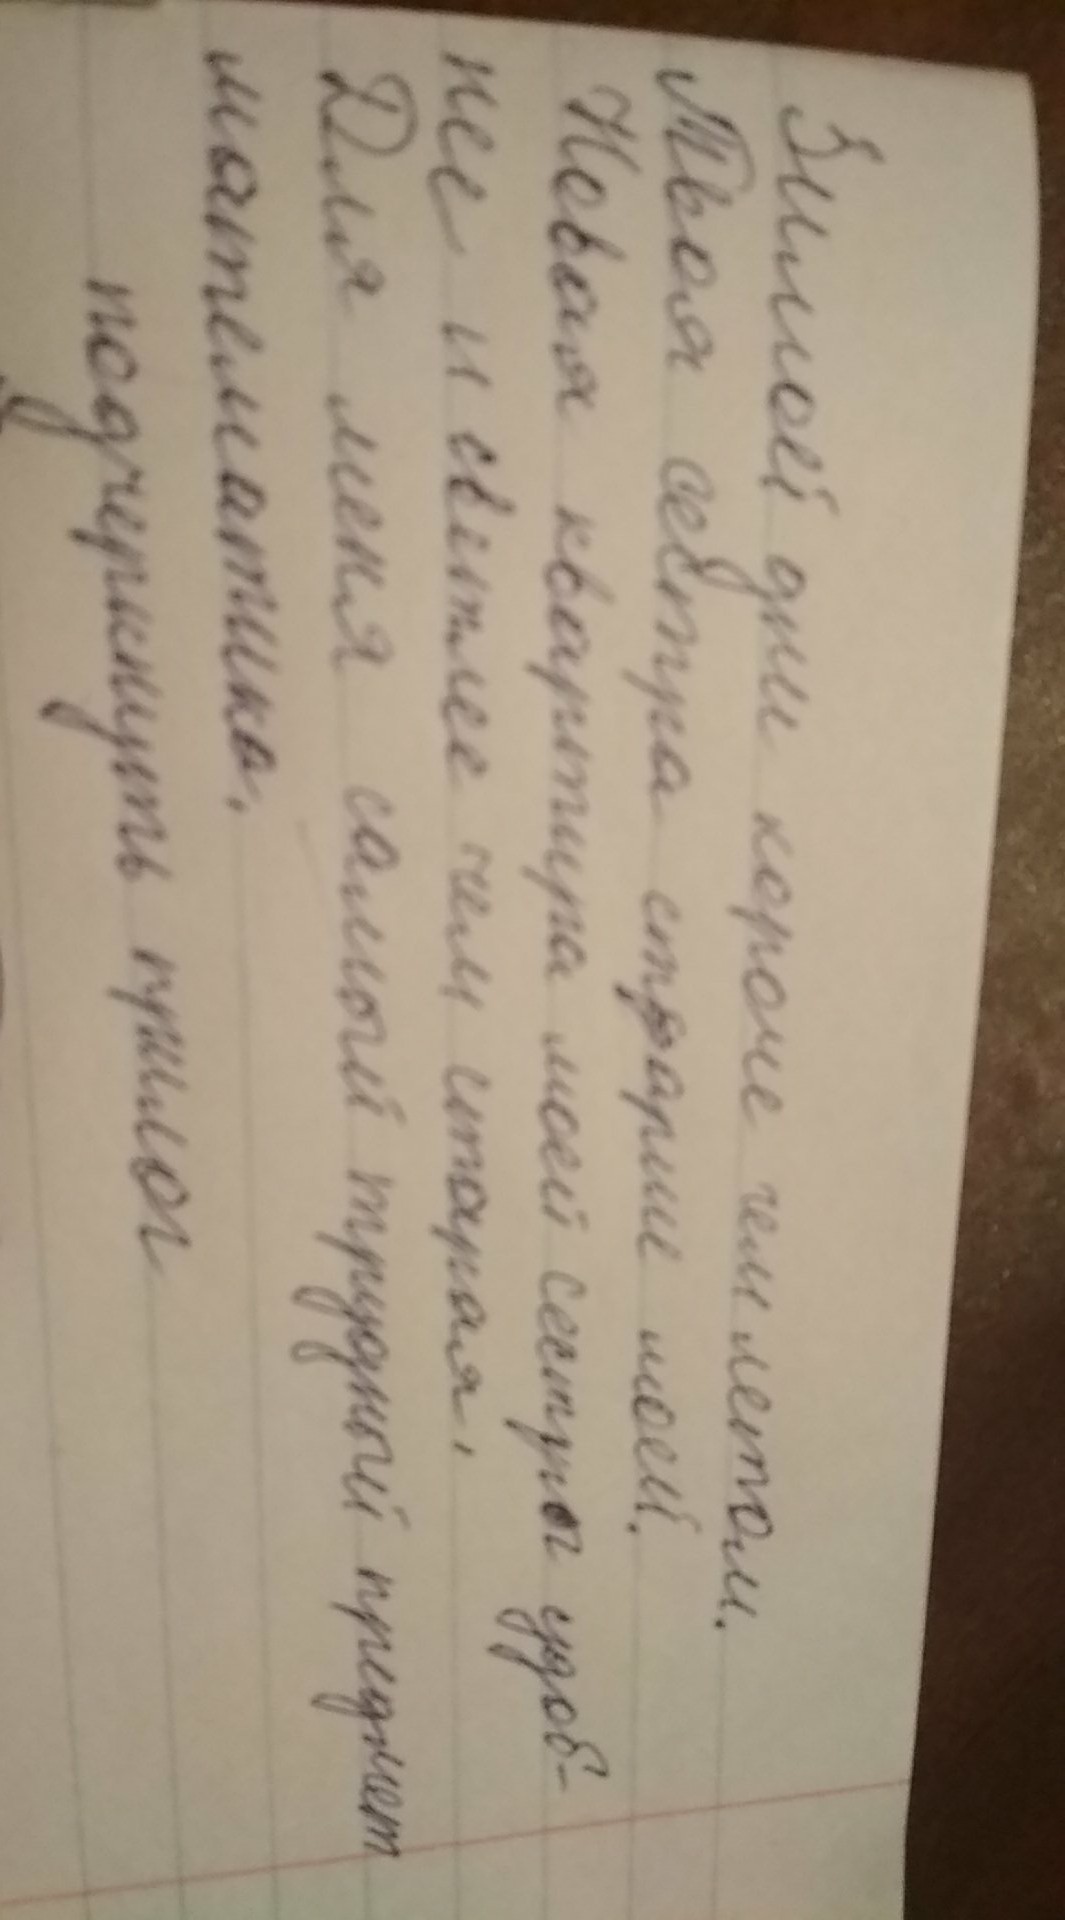 Зимой дни короче чем летом.
Твоя сестра старше моей.
Новая квартира моей сестры удоб-
нее и светлее чем старая.
Для меня самый трудный предмет
математика.
подчеркнуть